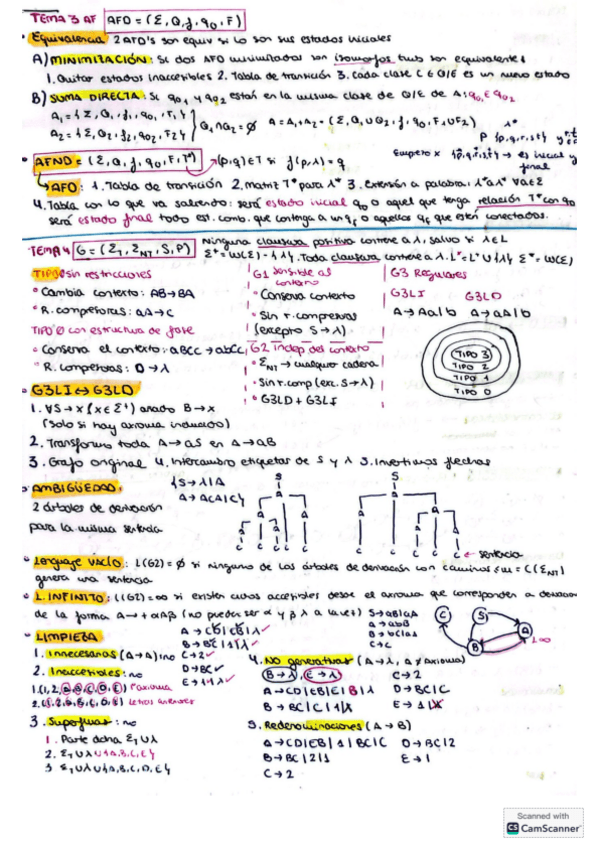 TEMA 3 AF AFD = (Σ, Q, f, q0, F)
Equivalencia 2 AFD's son equiv si lo son sus estados iniciales
A) MINIMIZACIÓN: Si dos AFD minimizados son isomorfos son equivalentes
1. Quitar estados inaccesibles 2. Tabla de transición 3. cada clase C ∈ Q/E es un nuevo estado
B) SUMA DIRECTA: Si q01 y q02 están en la misma clase de Q/E de A: q01 E q02
A1 = {Σ, Q1, f1, q01, F1}
A2 = {Σ, Q2, f2, q02, F2}
Q1 ∩ Q2 = ∅ A = A1 + A2 = (Σ, Q1 ∪ Q2, f, q0, F1 ∪ F2)
λ*
P {p,q,r,s,t}
AFND = (Σ, Q, f, q0, F, T*) (p,q) ∈ T si f(p,λ) = q
Empiezo x {p,q,r,s,t} → es inicial y final
AFD: 1. Tabla de transición 2. Matriz T* para λ* 3. Extensión a palabra: λ*aλ* ∀a∈Σ
4. Tabla con lo que va saliendo: será estado inicial q0 o aquel que tenga relación T* con q0
será estado final todo est. comb. que contenga a un qf o aquellos qf que estén conectados.
TEMA 4 G = (ΣT, ΣNT, S, P) Ninguna clausura positiva contiene a λ, salvo si λ ∈ L
Σ+ = W(Σ) - {λ}. Toda clausura contiene a λ. L* = L+ ∪ {λ} Σ* = W(Σ)
TIPO 0 sin restricciones
° Cambia contexto: AB → BA
° R. compresoras: aA → C
TIPO 0 con estructura de frase
° Conserva el contexto: aBCc → abCc
° R. compresoras: D → λ
G1 sensible al contexto
° Conserva contexto
° Sin r. compresoras
(excepto S → λ)
G2 indep del contexto
° ΣNT → cualquier cadena
° Sin r. comp (exc. S → λ)
° G3LD + G3LI
G3 Regulares
G3LI G3LD
A → Aa|b A → aA|b
TIPO 3
TIPO 2
TIPO 1
TIPO 0
G3LI ↔ G3LD
1. ∀S → x (x ∈ Σ+) añado B → x
(solo si hay axioma inducido)
2. Transformo toda A → aS en A → aB
3. Grafo original 4. Intercambio etiquetas de S y λ 5. Invertimos flechas
AMBIGÜEDAD.
2 árboles de derivación
para la misma sentencia
{S → λ|A
A → ACA|C}
S
A
A A A
C C C C C
S
A
A A A
C C C C C ← sentencia
Lenguaje vacío: L(G2) = ∅ si ninguno de los árboles de derivación con caminos ≤ m = C(ΣNT)
genera una sentencia
L. INFINITO: L(G2) = ∞ si existen accesibles desde el axioma que corresponden a
de la forma A → + αAβ (no pueden ser α y β λ a la vez)
S → aB|aA
A → abB
B → bc|aA
C → c
C S A B
L=∞
LIMPIEZA
1. Innecesarias (A → A): no
2. Inaccesibles: no
3. Superfluas: no
1. Parte dcha ΣT ∪ λ
2. ΣT ∪ λ ∪ {A, B, C, E}
3. ΣT ∪ λ ∪ {A, B, C, D, E}
A → CD|EB|λ ✓
B → BC|1|λ ✓
C → 2 ✓
D → BC ✓
E → 1|λ ✓
4. No generativas (A → λ, A ≠ axioma)
B → λ, E → λ C → 2
A → CD|EB|E|B|λ D → BC|C
B → BC|C|1|λ E → 1|λ
5. Redenominaciones (A → B)
A → CD|EB|1|BC|C D → BC|2
B → BC|2|1 E → 1
C → 2
Scanned with
CS CamScanner